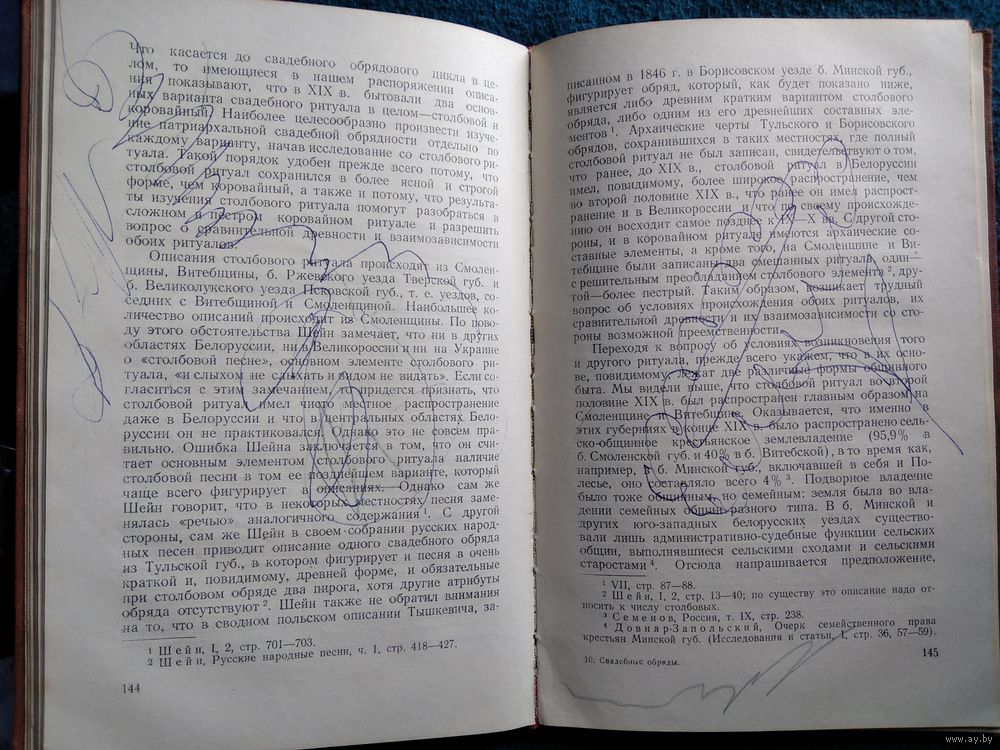 Что касается до свадебного обрядового цикла в це-
лом, то имеющиеся в нашем распоряжении описа-
ния показывают, что в XIX в. бытовали два основ-
ных варианта свадебного ритуала в целом—столбовой и
коровайный. Наиболее целесообразно произвести изуче-
ние патриархальной свадебной обрядности отдельно по
каждому варианту, начав исследование со столбового ри-
туала. Такой порядок удобен прежде всего потому, что
столбовой ритуал сохранился в более ясной и строгой
форме, чем коровайный, а также и потому, что результа-
ты изучения столбового ритуала помогут разобраться в
сложном и пестром коровайном ритуале и разрешить
вопрос о сравнительной древности и взаимозависимости
обоих ритуалов.
Описания столбового ритуала происходят из Смолен-
щины, Витебщины, б. Ржевского уезда Тверской губ. и
б. Великолужского уезда Псковской губ., т. е. уездов, со-
седних с Витебщиной и Смоленщиной. Наибольшее ко-
личество описаний происходит из Смоленщины. По пово-
ду этого обстоятельства Шейн замечает, что ни в других
областях Белоруссии, ни в Великороссии и ни на Украине
о «столбовой песне», основном элементе столбового ри-
туала, «и слыхом не слыхать и видом не видать». Если со-
гласиться с этим замечанием, то придется признать, что
столбовой ритуал имел чисто местное распространение
даже в Белоруссии и что в центральных областях Бело-
руссии он не практиковался. Однако это не совсем пра-
вильно. Ошибка Шейна заключается в том, что он счи-
тает основным элементом столбового ритуала наличие
столбовой песни в том ее позднейшем варианте, который
чаще всего фигурирует в описаниях. Однако сам же
Шейн говорит, что в некоторых местностях песня заме-
нялась «речью» аналогичного содержания 1. С другой
стороны, сам же Шейн в своем собрании русских народ-
ных песен приводит описание одного свадебного обряда
из Тульской губ., в котором фигурирует и песня в очень
краткой и, повидимому, древней форме, и обязательные
при столбовом обряде два пирога, хотя другие атрибуты
обряда отсутствуют 2. Шейн также не обратил внимания
на то, что в сводном польском описании Тышкевича, за-
1 Шейн, I, 2, стр. 701—703.
2 Шейн, Русские народные песни, ч. 1, стр. 418—427.
144
писанном в 1846 г. в Борисовском уезде б. Минской губ.,
фигурирует обряд, который, как будет показано ниже,
является либо древним кратким вариантом столбового
обряда, либо одним из его древнейших составных эле-
ментов 1. Архаические черты Тульского и Борисовского
обрядов, сохранившихся в таких местностях, где полный
столбовой ритуал не был записан, свидетельствуют о том,
что ранее, до XIX в., столбовой ритуал в Белоруссии
имел, повидимому, более широкое распространение, чем
во второй половине XIX в., что ранее он имел распрост-
ранение и в Великороссии и что по своему происхожде-
нию он восходит самое позднее к IX—X вв. С другой сто-
роны, и в коровайном ритуале имеются архаические со-
ставные элементы, а кроме того, на Смоленщине и Ви-
тебщине были записаны два смешанных ритуала, один—
с решительным преобладанием столбового элемента 2, дру-
гой—более пестрый. Таким образом, возникает трудный
вопрос об условиях происхождения обоих ритуалов, их
сравнительной древности и их взаимозависимости со сто-
роны возможной преемственности.
Переходя к вопросу об условиях возникновения того
и другого ритуала, прежде всего укажем, что в их осно-
ве, повидимому, лежат две различные формы общинного
быта. Мы видели выше, что столбовой ритуал во второй
половине XIX в. был распространен главным образом на
Смоленщине и Витебщине. Оказывается, что именно в
этих губерниях в конце XIX в. было распространено сель-
ско-общинное крестьянское землевладение (95,9% в
б. Смоленской губ. и 40% в б. Витебской), в то время как,
например, в б. Минской губ., включавшей в себя и По-
лесье, оно составляло всего 4% 3. Подворное владение
было тоже общинным, но семейным: земля была во вла-
дении семейных общин разного типа. В б. Минской и
других юго-западных белорусских уездах существо-
вали лишь административно-судебные функции сельских
общин, выполнявшиеся сельскими сходами и сельскими
старостами 4. Отсюда напрашивается предположение,
1 VII, стр. 87—88.
2 Шейн, I, 2, стр. 13—40; по существу это описание надо от-
носить к числу столбовых.
3 Семенов, Россия, т. IX, стр. 238.
4 Довнар-Запольский, Очерк семейственного права
крестьян Минской губ. (Исследования и статьи, I, стр. 36, 57—59).
10. Свадебные обряды.
145
www.ay.by